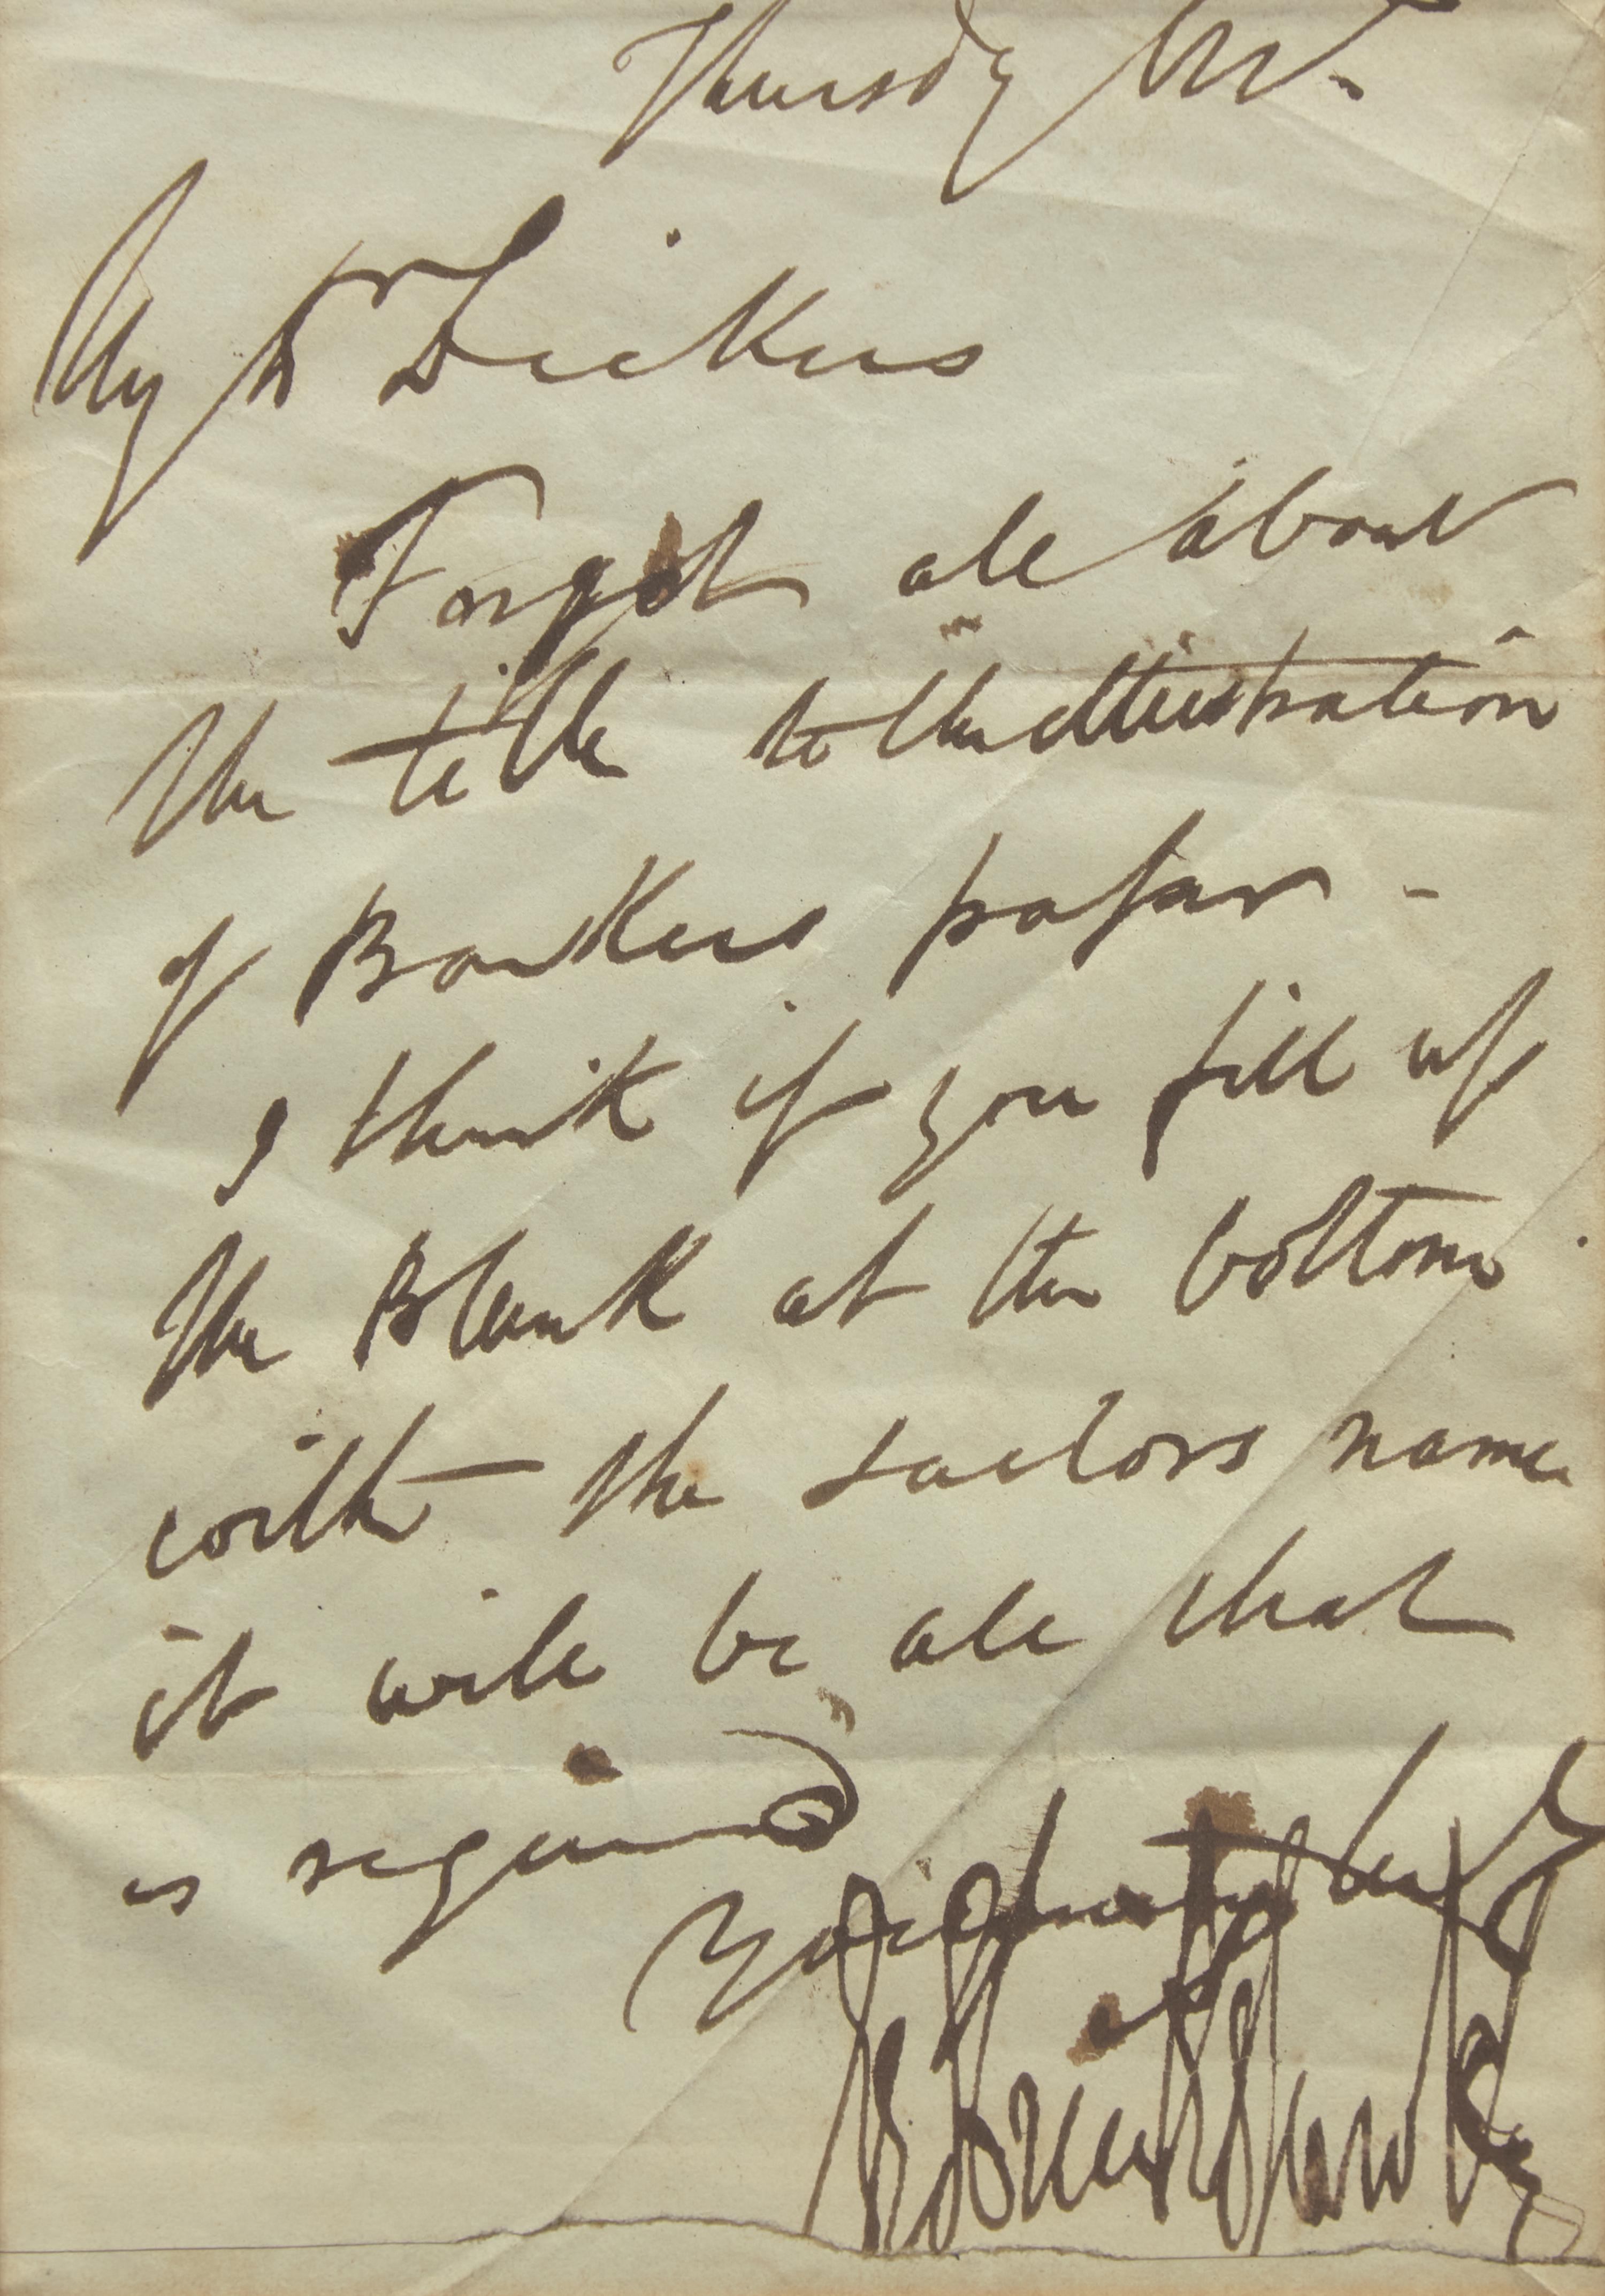 Thursdy
My Dr Dickens
Forgot all about
the title to the illustration
of Barkers paper -
I think if you fill up
the Blank at the bottom
with the sailors name
it will be all that
is required
George Cruikshank